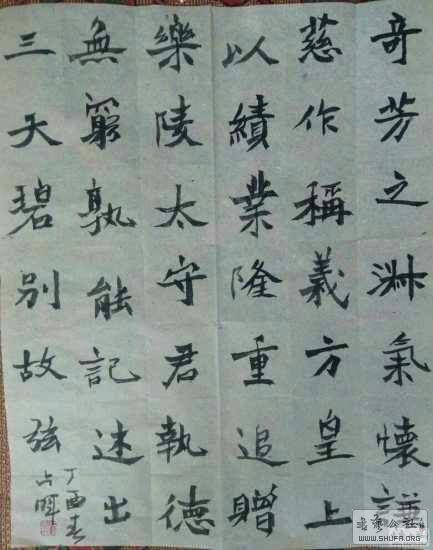 奇芳之淑氣懷謙
慈作稱義方皇上
以績業隆重追贈
樂陵太守君執德
無窮孰能記述出
三天碧別故弦
丁酉春
占暉
WWW.SHUFA.ORG